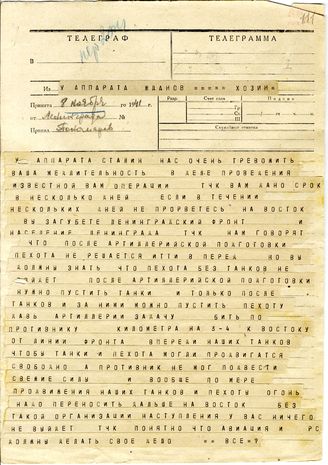 111
ТЕЛЕГРАФ ТЕЛЕГРАММА
В
Из У АППАРАТА ЖДАНОВ ===== ХОЗИН=
Принята 8 ноября го 1941 Разр. Счет слов Подача
от Ленинграда
Принял Служебные отметки
У АППАРАТА СТАЛИН НАС ОЧЕНЬ ТРЕВОЖИТЬ
ВАША МЕДЛИТЕЛЬНОСТЬ В ДЕЛЕ ПРОВЕДЕНИЯ
ИЗВЕСТНОЙ ВАМ ОПЕРАЦИИ ТЧК ВАМ ДАНО СРОК
В НЕСКОЛЬКО ДНЕЙ ЕСЛИ В ТЕЧЕНИИ
НЕСКОЛЬКИХ ДНЕЙ НЕ ПРОРВЕТЕСЬ НА ВОСТОК
ВЫ ЗАГУБЕТЕ ЛЕНИНГРАДСКИЙ ФРОНТ И
НАСЕЛЕНИЕ ЛЕНИНГРАДА ТЧК НАМ ГОВОРЯТ
ЧТО ПОСЛЕ АРТИЛЛЕРИЙСКОЙ ПОДГОТОВКИ
ПЕХОТА НЕ РЕШАЕТСЯ ИТТИ В ПЕРЕД НО ВЫ
ДОЛЖНЫ ЗНАТЬ ЧТО ПЕХОТА БЕЗ ТАНКОВ НЕ
ПОЙДЕТ ПОСЛЕ АРТИЛЛЕРИЙСКОЙ ПОДГОТОВКИ
НУЖНО ПУСТИТЬ ТАНКИ И ТОЛЬКО ПОСЛЕ
ТАНКОВ И ЗА НИМИ МОЖНО ПУСТИТЬ ПЕХОТУ
ДАВЬ АРТИЛЛЕРИИ ЗАДАЧУ БИТЬ ПО
ПРОТИВНИКУ КИЛОМЕТРА НА 3-4 К ВОСТОКУ
ОТ ЛИНИИ ФРОНТА ВПЕРЕДИ НАШИХ ТАНКОВ
ЧТОБЫ ТАНКИ И ПЕХОТА МОГЛИ ПРОДВИГАТСЯ
СВОБОДНО А ПРОТИВНИК НЕ МОГ ПОДВЕСТИ
СВЕЖИЕ СИЛЫ И ВООБЩЕ ПО МЕРЕ
ПРОДВИЖЕНИЯ НАШИХ ТАНКОВ И ПЕХОТЫ ОГОНЬ
НАДО ПЕРЕНОСИТЬ ДАЛЬШЕ НА ВОСТОК БЕЗ
ТАКОЙ ОРГАНИЗАЦИИ НАСТУПЛЕНИЯ У ВАС НИЧЕГО
НЕ ВЫЙДЕТ ТЧК ПОНЯТНО ЧТО АВИАЦИЯ И РС
ДОЛЖНЫ ДЕЛАТЬ СВОЕ ДЕЛО == ВСЕ=?